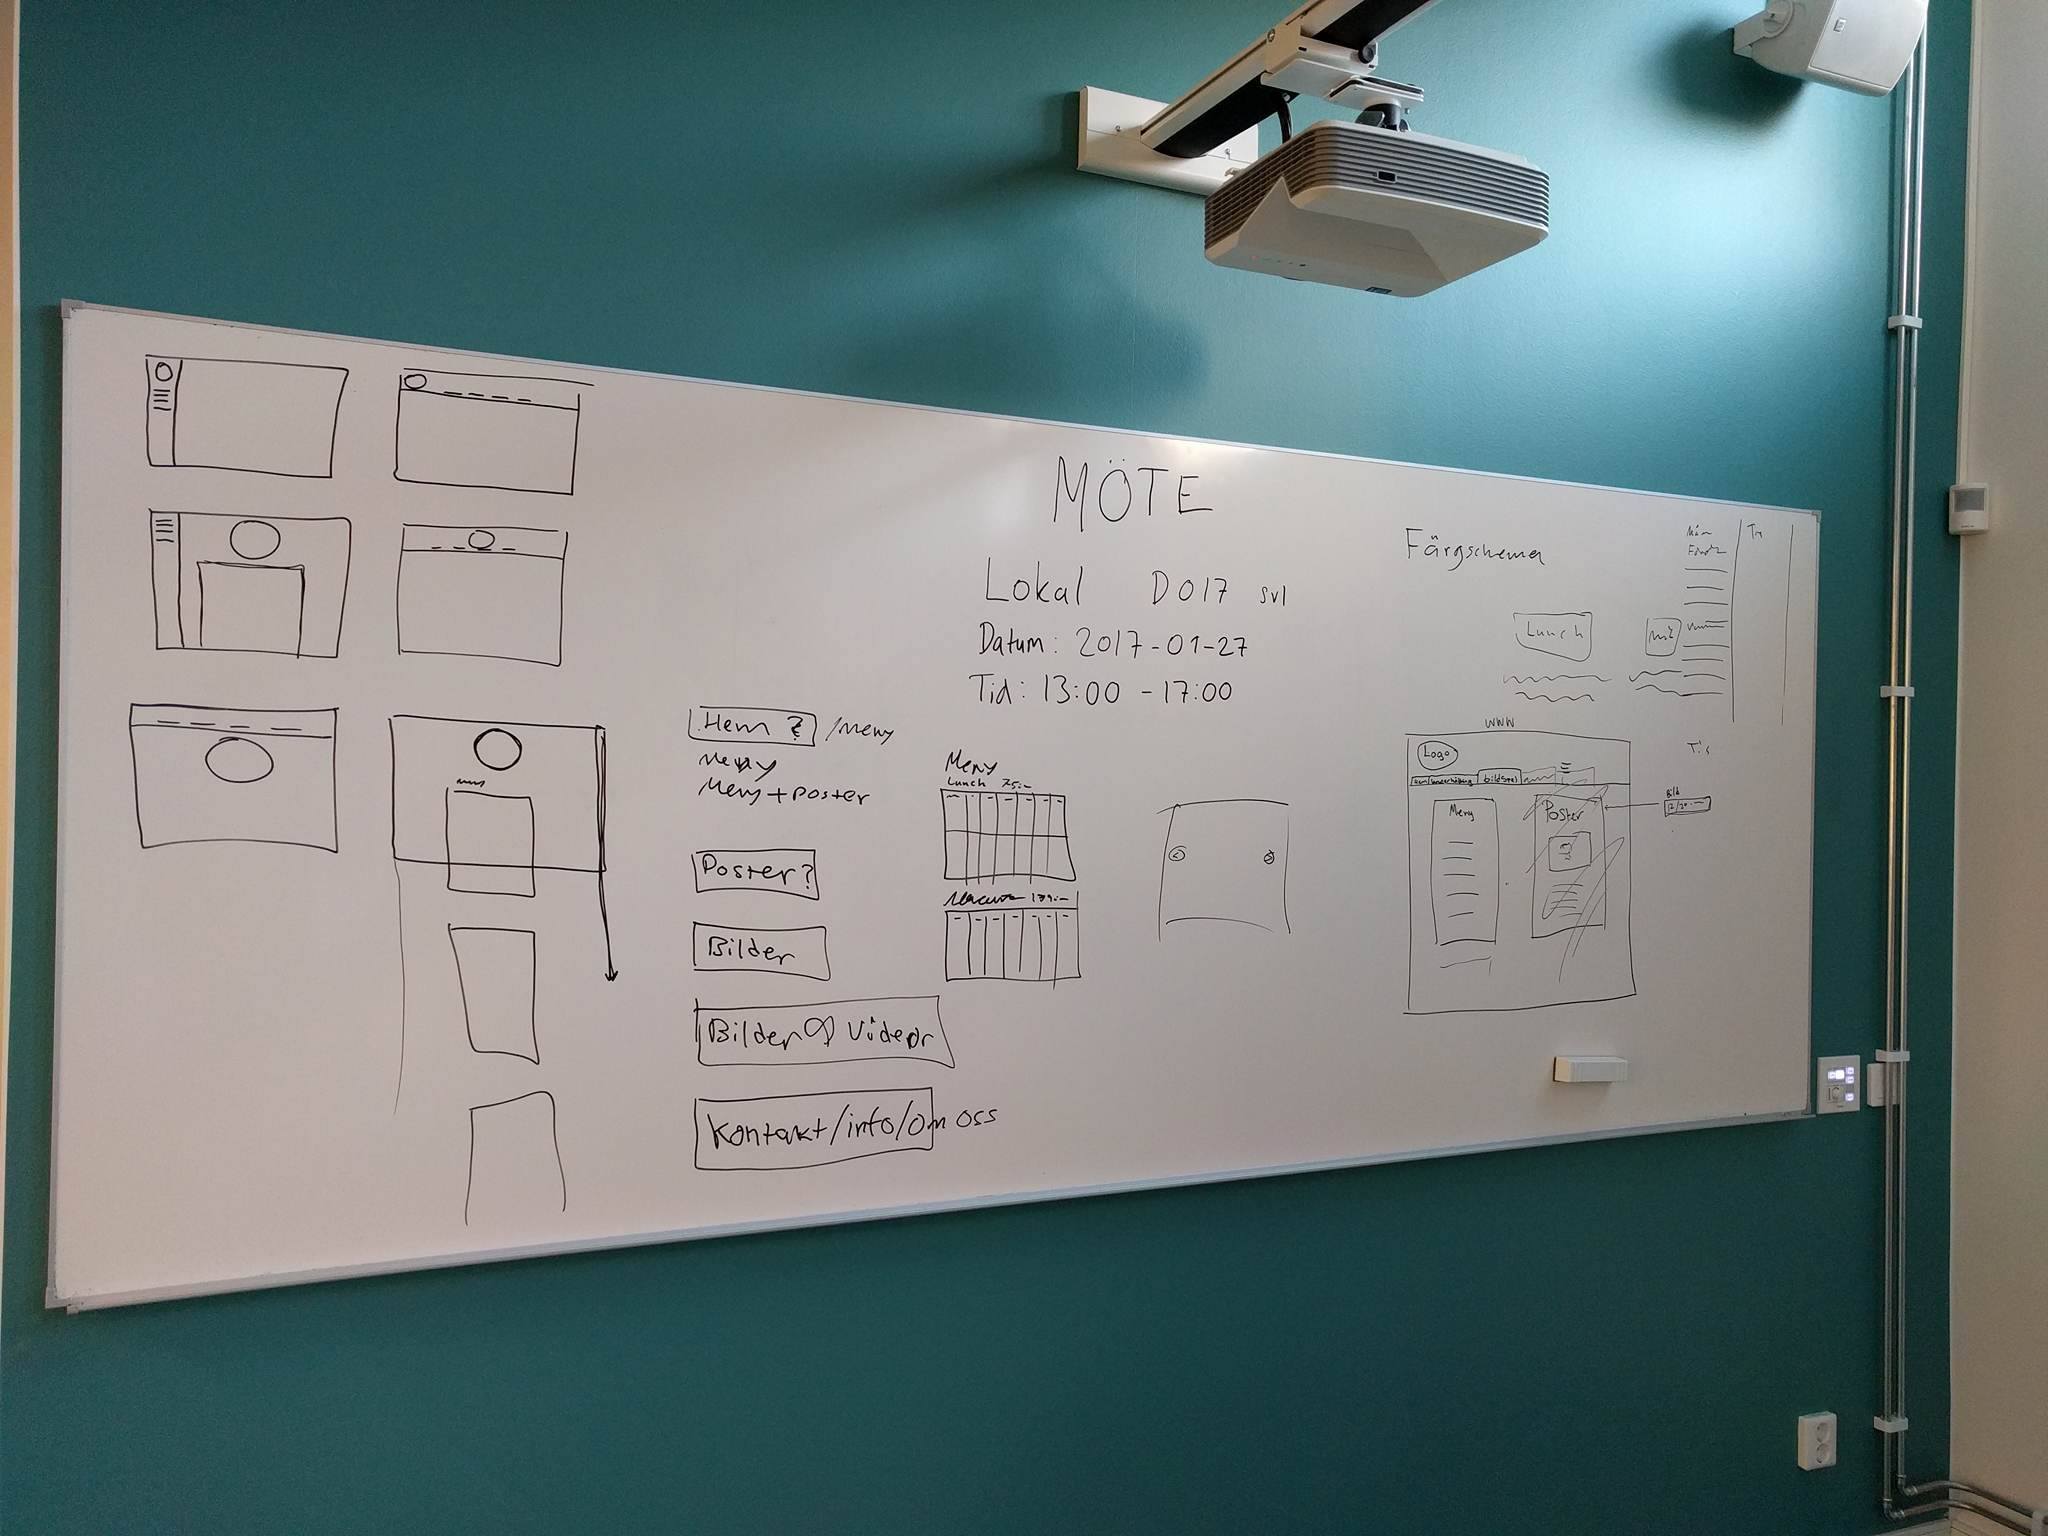 MÖTE
Lokal D017 svl
Datum: 2017-01-27
Tid: 13:00 - 17:00
Hem ? /Meny
Meny
Meny + poster
Poster?
Bilder
Bilder & Videor
Kontakt/info/Om oss
Meny
Lunch 75:-
139:-
Färgschema
Lunch
Mån
Tis
WWW
Logo
bildspel
Meny
Poster
Bild
Tis